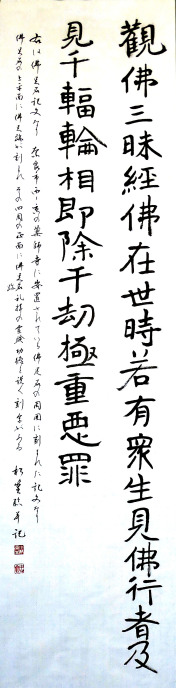 觀佛三昧經佛在世時若有衆生見佛行者及
見千輻輪相即除千劫極重惡罪
右は佛足石記文なり 奈良市西ノ京の薬師寺に安置されている佛足石の周囲に刻まれた記文なり
佛足石の上平面に佛足跡が刻まれ その四周の側面に佛足石礼拝の霊験功徳を説く刻字がある